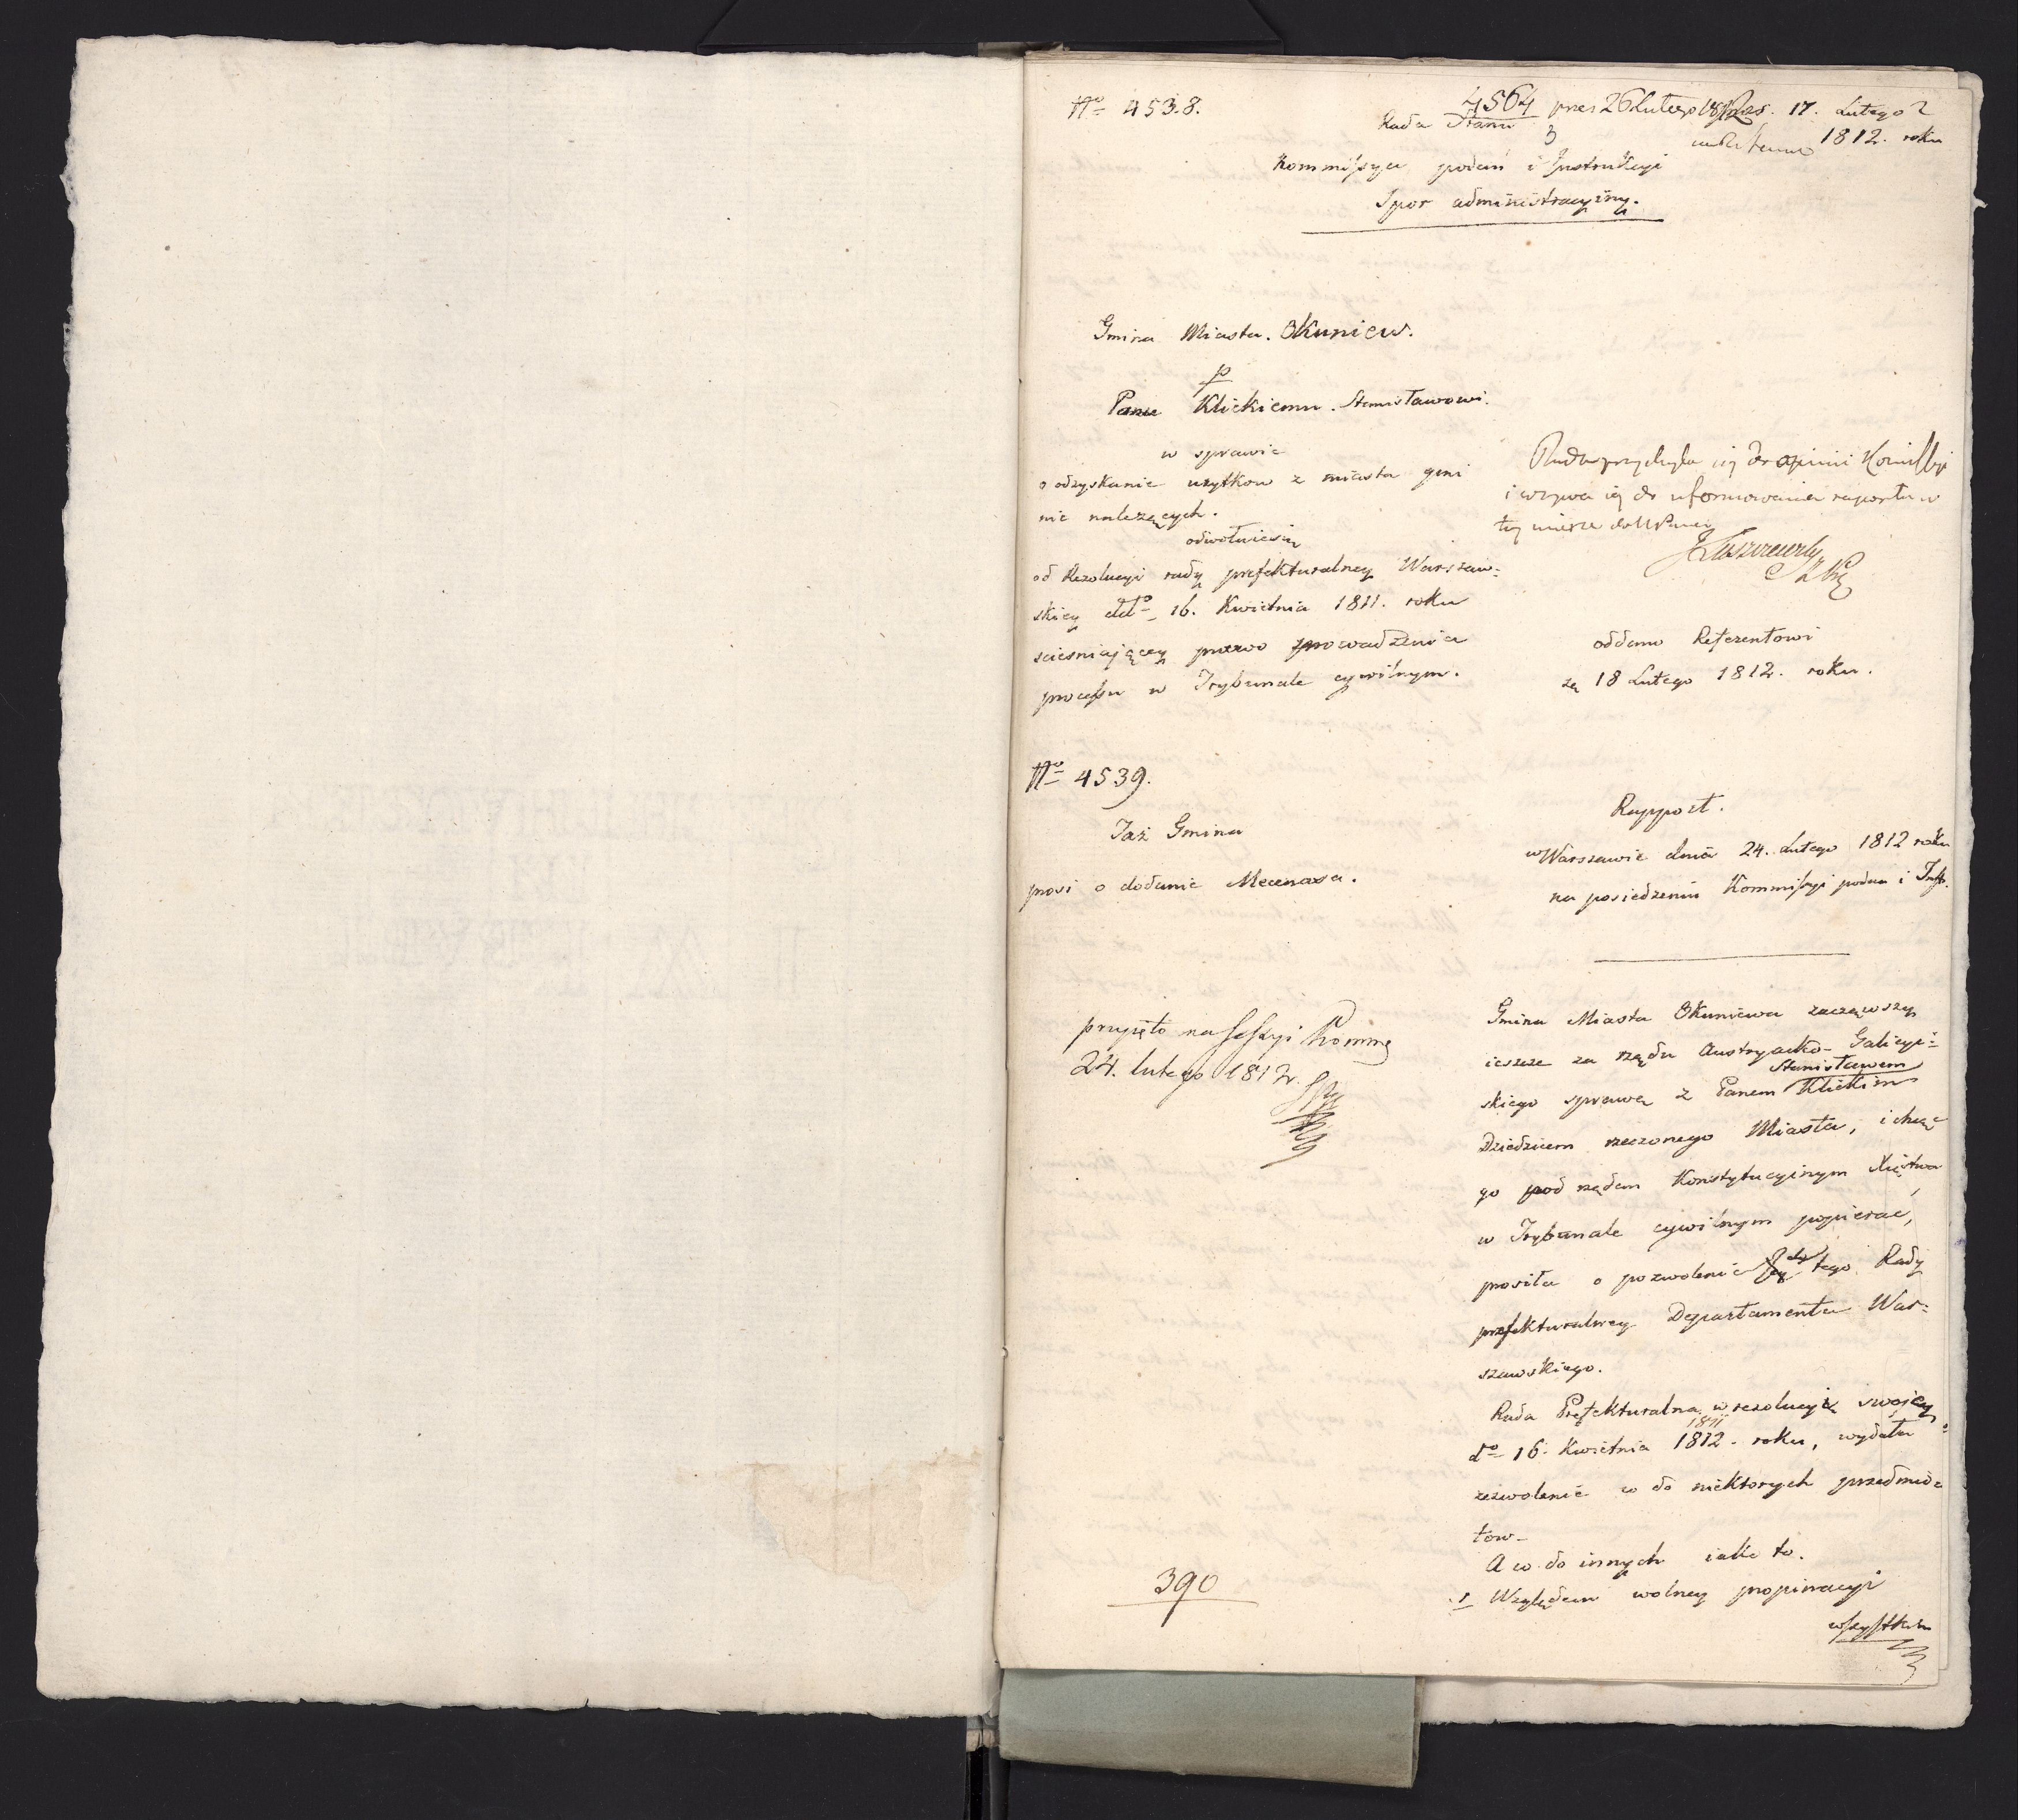 No 4538.
4564 pres 26 Lutego 1812
Pres. 17. Lutego
1812. roku
Rada Stanu
3
Kommissya podań i Instrukcyi
Spor administracyiny.
Gmina Miasta. Okuniew.
p
Panu Klickiemu. Stanisławowi.
w sprawie
o odzyskanie użytkow z miasta gmi
nie należących.
odwołuie się
od Rezolucyi rady prefekturalney Warszaw-
skiey ddo 16. Kwietnia 1811. roku
scieśniaiącey prawo prowadzenia
processu w Trybunale cywilnym.
Rada przychyla się do opinii Kommissyi
i wzywa ią do uformowania raportu w
tey mierze
oddano Referentowi
18 Lutego 1812. roku.
No 4539.
Taż Gmina
prosi o dodanie Mecenasa.
przyięto na Sessyi Kommi
24. lutego 1812 r.
390
Rapport.
w Warszawie dnia 24. Lutego 1812 roku
na posiedzeniu Kommissyi podan i Instr.
Gmina Miasta Okuniewa zacząwszy
ieszcze za rządu Austryacko-Galicyi-
Stanisławem
skiego sprawę z Panem Klickim
Dziedzicem rzeczonego Miasta, i chcąc
go pod rządem Konstytucyinym Xięstwa
w Trybunale cywilnym popierać,
prosiła o pozwolenie do tego Rady
prefekturalney Departamentu War-
szawskiego.
Rada Prefekturalna w rezolucyi swoiey
1811
do 16. Kwietnia 1812. roku, wydała
zezwolenie co do niektorych przedmio-
tow-
A co do innych iako to.
1 Względem wolney propinacyi
wszystkim